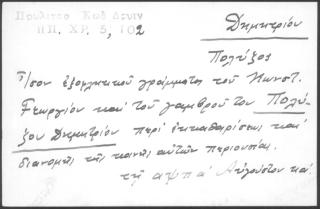 Δημητρίου
ΠΠ. ΧΡ. 5, 102
Πολύζος
Ἴσον ἐξοφλητικοῦ γράμματος τοῦ Κωνστ.
Γεωργίου καί τοῦ γαμβροῦ του Πολύ-
ζου Δημητρίου περί ἐκκαθαρίσεως καί
διανομῆς τῆς κοινῆς αὐτῶν περιουσίας.
τῇ αψπα' Αὐγούστου κα'.